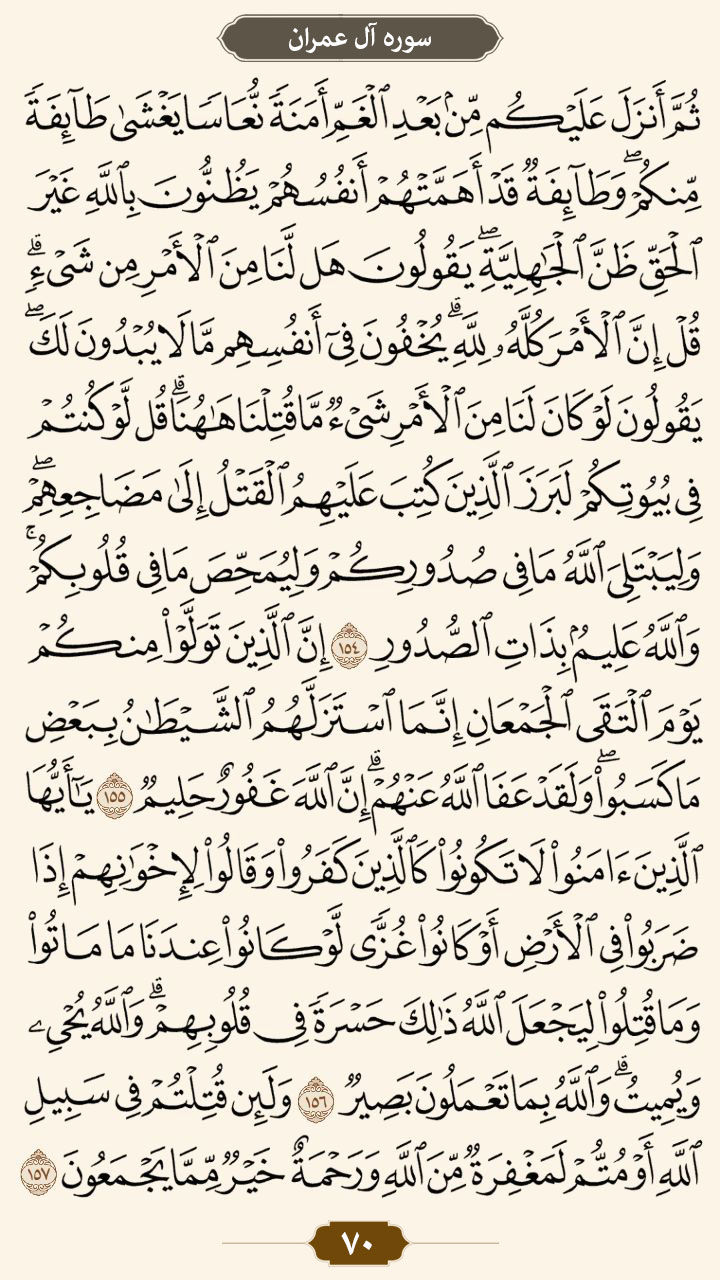 سوره آل عمران
ثُمَّ أَنزَلَ عَلَيۡكُم مِّنۢ بَعۡدِ ٱلۡغَمِّ أَمَنَةٗ نُّعَاسٗا يَغۡشَىٰ طَآئِفَةٗ
مِّنكُمۡۖ وَطَآئِفَةٞ قَدۡ أَهَمَّتۡهُمۡ أَنفُسُهُمۡ يَظُنُّونَ بِٱللَّهِ غَيۡرَ
ٱلۡحَقِّ ظَنَّ ٱلۡجَٰهِلِيَّةِۖ يَقُولُونَ هَل لَّنَا مِنَ ٱلۡأَمۡرِ مِن شَيۡءٖۗ
قُلۡ إِنَّ ٱلۡأَمۡرَ كُلَّهُۥ لِلَّهِۗ يُخۡفُونَ فِيٓ أَنفُسِهِم مَّا لَا يُبۡدُونَ لَكَۖ
يَقُولُونَ لَوۡ كَانَ لَنَا مِنَ ٱلۡأَمۡرِ شَيۡءٞ مَّا قُتِلۡنَا هَٰهُنَاۗ قُل لَّوۡ كُنتُمۡ
فِي بُيُوتِكُمۡ لَبَرَزَ ٱلَّذِينَ كُتِبَ عَلَيۡهِمُ ٱلۡقَتۡلُ إِلَىٰ مَضَاجِعِهِمۡۖ
وَلِيَبۡتَلِيَ ٱللَّهُ مَا فِي صُدُورِكُمۡ وَلِيُمَحِّصَ مَا فِي قُلُوبِكُمۡۚ
وَٱللَّهُ عَلِيمُۢ بِذَاتِ ٱلصُّدُورِ ١٥٤ إِنَّ ٱلَّذِينَ تَوَلَّوۡاْ مِنكُمۡ
يَوۡمَ ٱلۡتَقَى ٱلۡجَمۡعَانِ إِنَّمَا ٱسۡتَزَلَّهُمُ ٱلشَّيۡطَٰنُ بِبَعۡضِ
مَا كَسَبُواْۖ وَلَقَدۡ عَفَا ٱللَّهُ عَنۡهُمۡۗ إِنَّ ٱللَّهَ غَفُورٌ حَلِيمٞ ١٥٥ يَٰٓأَيُّهَا
ٱلَّذِينَ ءَامَنُواْ لَا تَكُونُواْ كَٱلَّذِينَ كَفَرُواْ وَقَالُواْ لِإِخۡوَٰنِهِمۡ إِذَا
ضَرَبُواْ فِي ٱلۡأَرۡضِ أَوۡ كَانُواْ غُزّٗى لَّوۡ كَانُواْ عِندَنَا مَا مَاتُواْ
وَمَا قُتِلُواْ لِيَجۡعَلَ ٱللَّهُ ذَٰلِكَ حَسۡرَةٗ فِي قُلُوبِهِمۡۗ وَٱللَّهُ يُحۡيِۦ
وَيُمِيتُۗ وَٱللَّهُ بِمَا تَعۡمَلُونَ بَصِيرٞ ١٥٦ وَلَئِن قُتِلۡتُمۡ فِي سَبِيلِ
ٱللَّهِ أَوۡ مُتُّمۡ لَمَغۡفِرَةٞ مِّنَ ٱللَّهِ وَرَحۡمَةٌ خَيۡرٞ مِّمَّا يَجۡمَعُونَ ١٥٧
٧٠